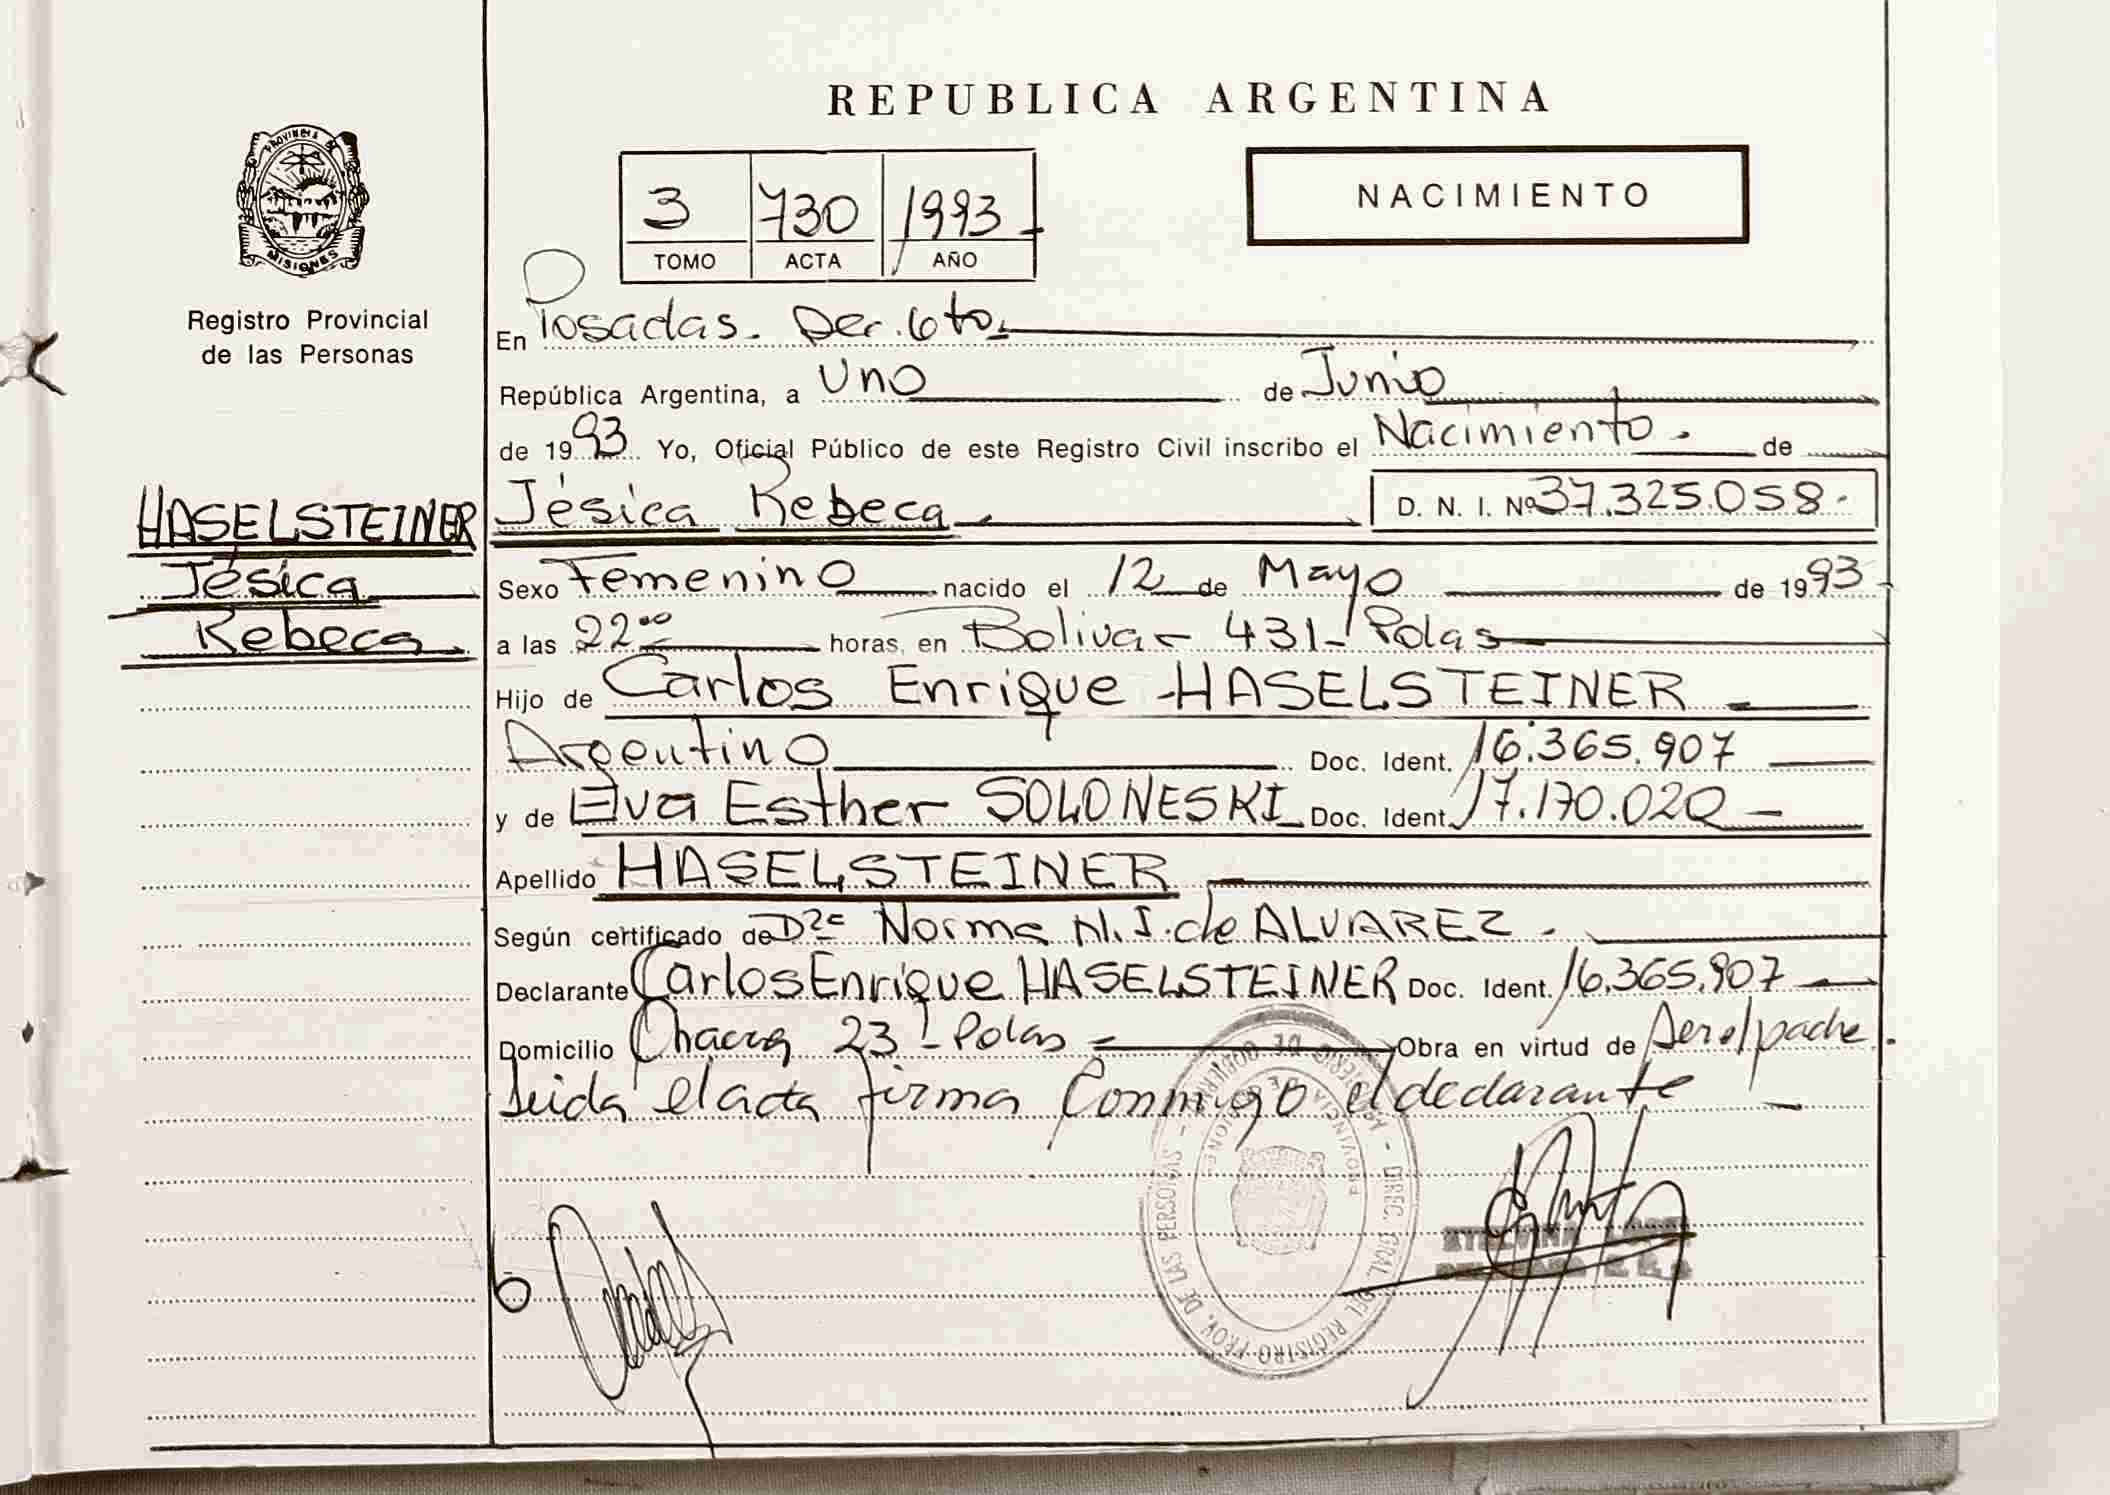 REPUBLICA ARGENTINA
PROVINCIA DE
MISIONES
Registro Provincial
de las Personas
NACIMIENTO
3 730 1993
TOMO ACTA AÑO
En Posadas. Der. 6to.
República Argentina, a Uno de Junio
de 1993 Yo, Oficial Público de este Registro Civil inscribo el Nacimiento. de
HASELSTEINER
Jésica
Rebeca
Jésica Rebeca D. N. I. Nº 37.325.058.
Sexo Femenino nacido el 12 de Mayo de 1993
a las 22 00 horas, en Bolivar 431- Pdas
Hijo de Carlos Enrique HASELSTEINER
Argentino Doc. Ident. 16.365.907
y de Elva Esther SOLONESKI Doc. Ident. 17.170.020
Apellido HASELSTEINER
Según certificado de Norma N.I. de ALVAREZ.
Declarante Carlos Enrique HASELSTEINER Doc. Ident. 16.365.907
Domicilio Chacra 23 - Pdas Obra en virtud de Ser el padre
Leida el acta firma Conmigo el declarante
DIREC. GRAL. DEL REGISTRO PROV. DE LAS PERSONAS - MINISTERIO DE GOBIERNO
PROVINCIA DE MISIONES